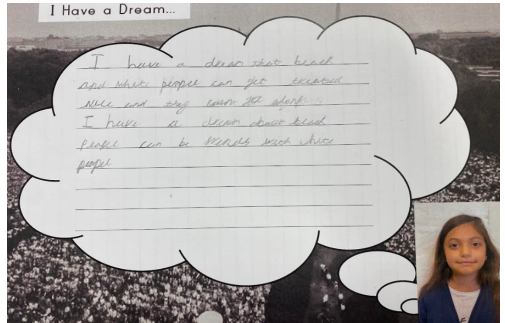 I Have a Dream...
I have a dream that black
and white people can get treated
nice and they
I have a dream that
people can be friends with white
peopel